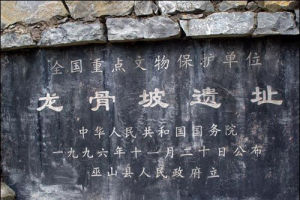 全国重点文物保护单位
龙骨坡遗址
中华人民共和国国务院
一九九六年十一月二十日公布
巫山县人民政府立